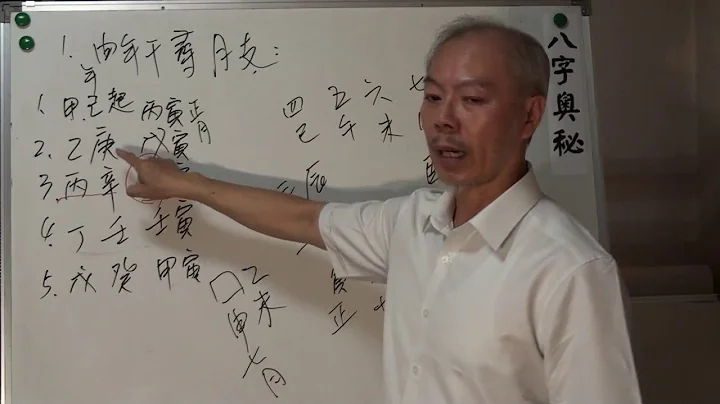 1. 由年干尋月支:
年
1. 甲.己起 丙寅正月
2. 乙庚 戊寅
3. 丙辛
4. 丁壬 壬寅
5. 戊癸 甲寅
四 五 六
巳 午 未
辰
乙未
申七月
正
八字奧秘